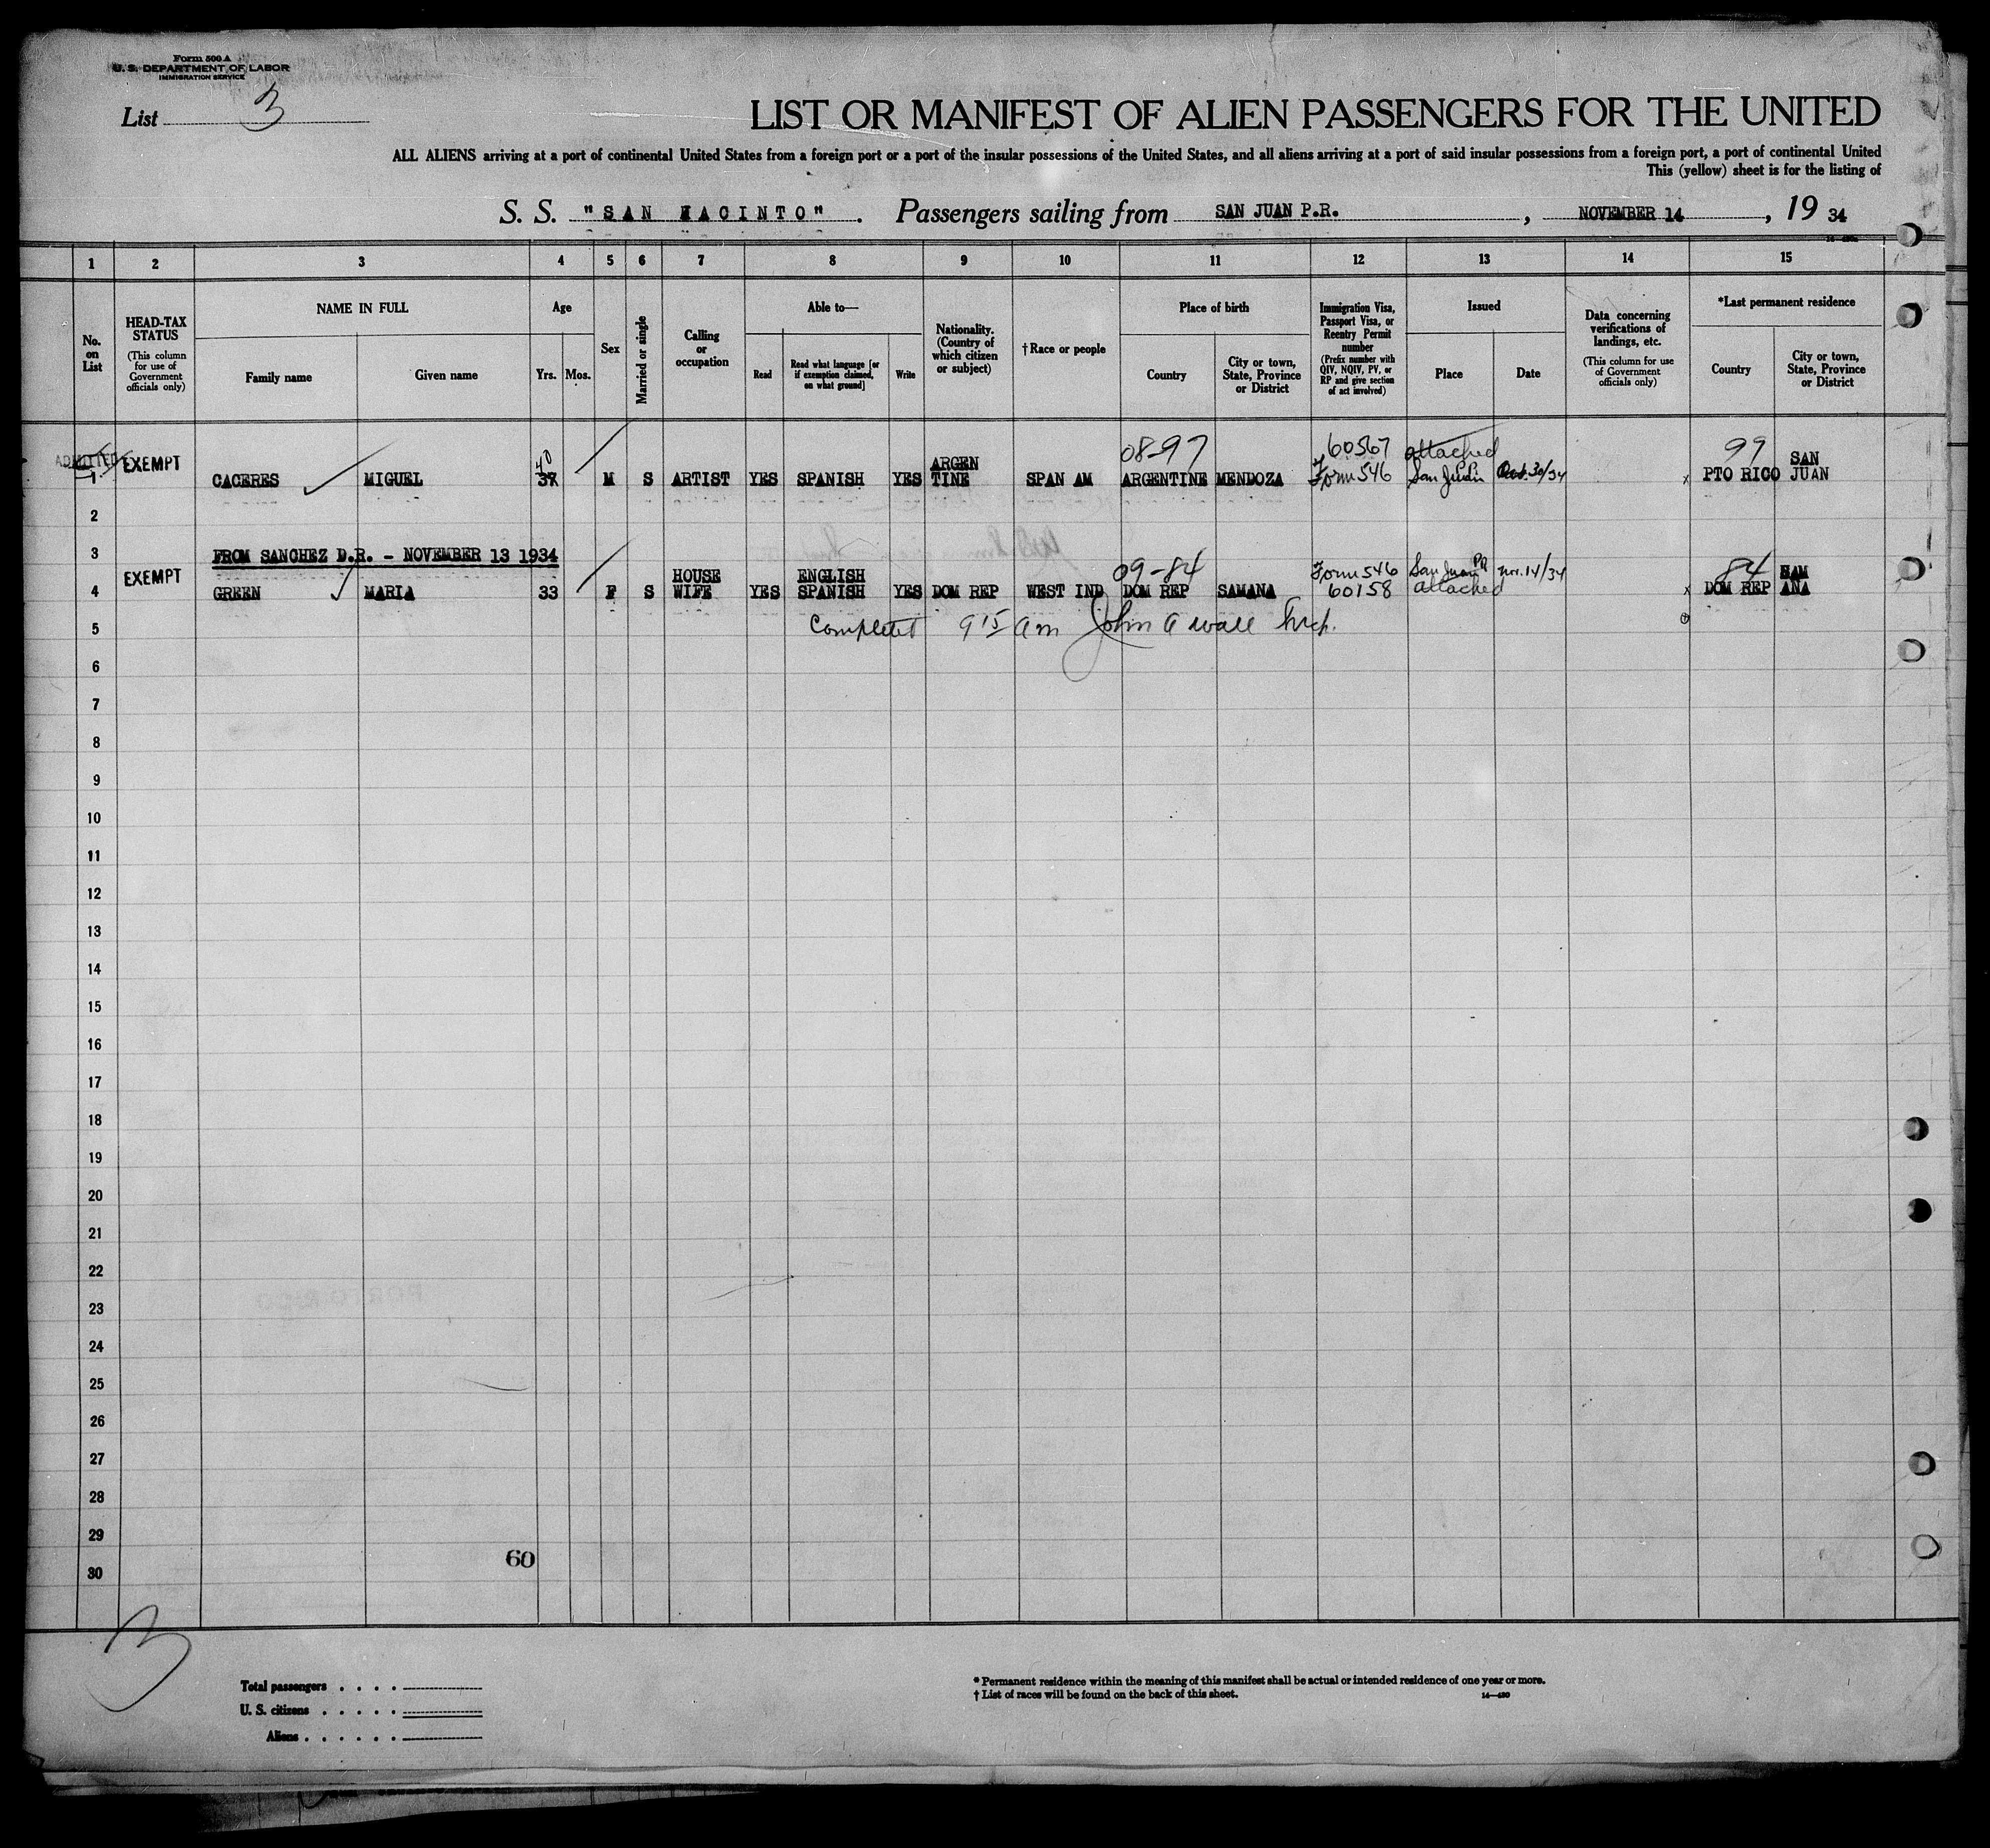 Form 500 A
U. S. DEPARTMENT OF LABOR
IMMIGRATION SERVICE
List 3
LIST OR MANIFEST OF ALIEN PASSENGERS FOR THE UNITED
ALL ALIENS arriving at a port of continental United States from a foreign port or a port of the insular possessions of the United States, and all aliens arriving at a port of said insular possessions from a foreign port, a port of continental United
This (yellow) sheet is for the listing of
S. S. "SAN JACINTO". Passengers sailing from SAN JUAN P.R. , NOVEMBER 14 , 19 34
1 2 3 4 5 6 7 8 9 10 11 12 13 14 15
No. on List
HEAD-TAX STATUS
(This column for use of Government officials only)
NAME IN FULL
Family name Given name
Age
Yrs. Mos.
Sex
Married or single
Calling or occupation
Able to—
Read
Read what language [or if exemption claimed, on what ground]
Write
Nationality. (Country of which citizen or subject)
†Race or people
Place of birth
Country
City or town, State, Province or District
Immigration Visa, Passport Visa, or Reentry Permit number
(Prefix number with QIV, NQIV, PV, or RP and give section of act involved)
Issued
Place Date
Data concerning verifications of landings, etc.
(This column for use of Government officials only)
*Last permanent residence
Country
City or town, State, Province or District
40 08-97 60567 attached 99
ADMITTED EXEMPT ARGEN P.R. SAN
1 CACERES MIGUEL 37 M S ARTIST YES SPANISH YES TINE SPAN AM ARGENTINE MENDOZA Form 546 San Juan Oct. 30/34 x PTO RICO JUAN
2
3 FROM SANCHEZ D.R. - NOVEMBER 13 1934
EXEMPT HOUSE ENGLISH 09-84 Form 546 San Juan PR Nov. 14/34 84 SAM
4 GREEN MARIA 33 F S WIFE YES SPANISH YES DOM REP WEST IND DOM REP SAMANA 60158 attached x DOM REP ANA
5 Completed 9 15 am John A Wall Insp.
6
7
8
9
10
11
12
13
14
15
16
17
18
19
20
21
22
23
24
25
26
27
28
29
60
30
3
Total passengers . . . .
U. S. citizens . . . . .
Aliens . . . . . .
* Permanent residence within the meaning of this manifest shall be actual or intended residence of one year or more.
† List of races will be found on the back of this sheet.
14—430